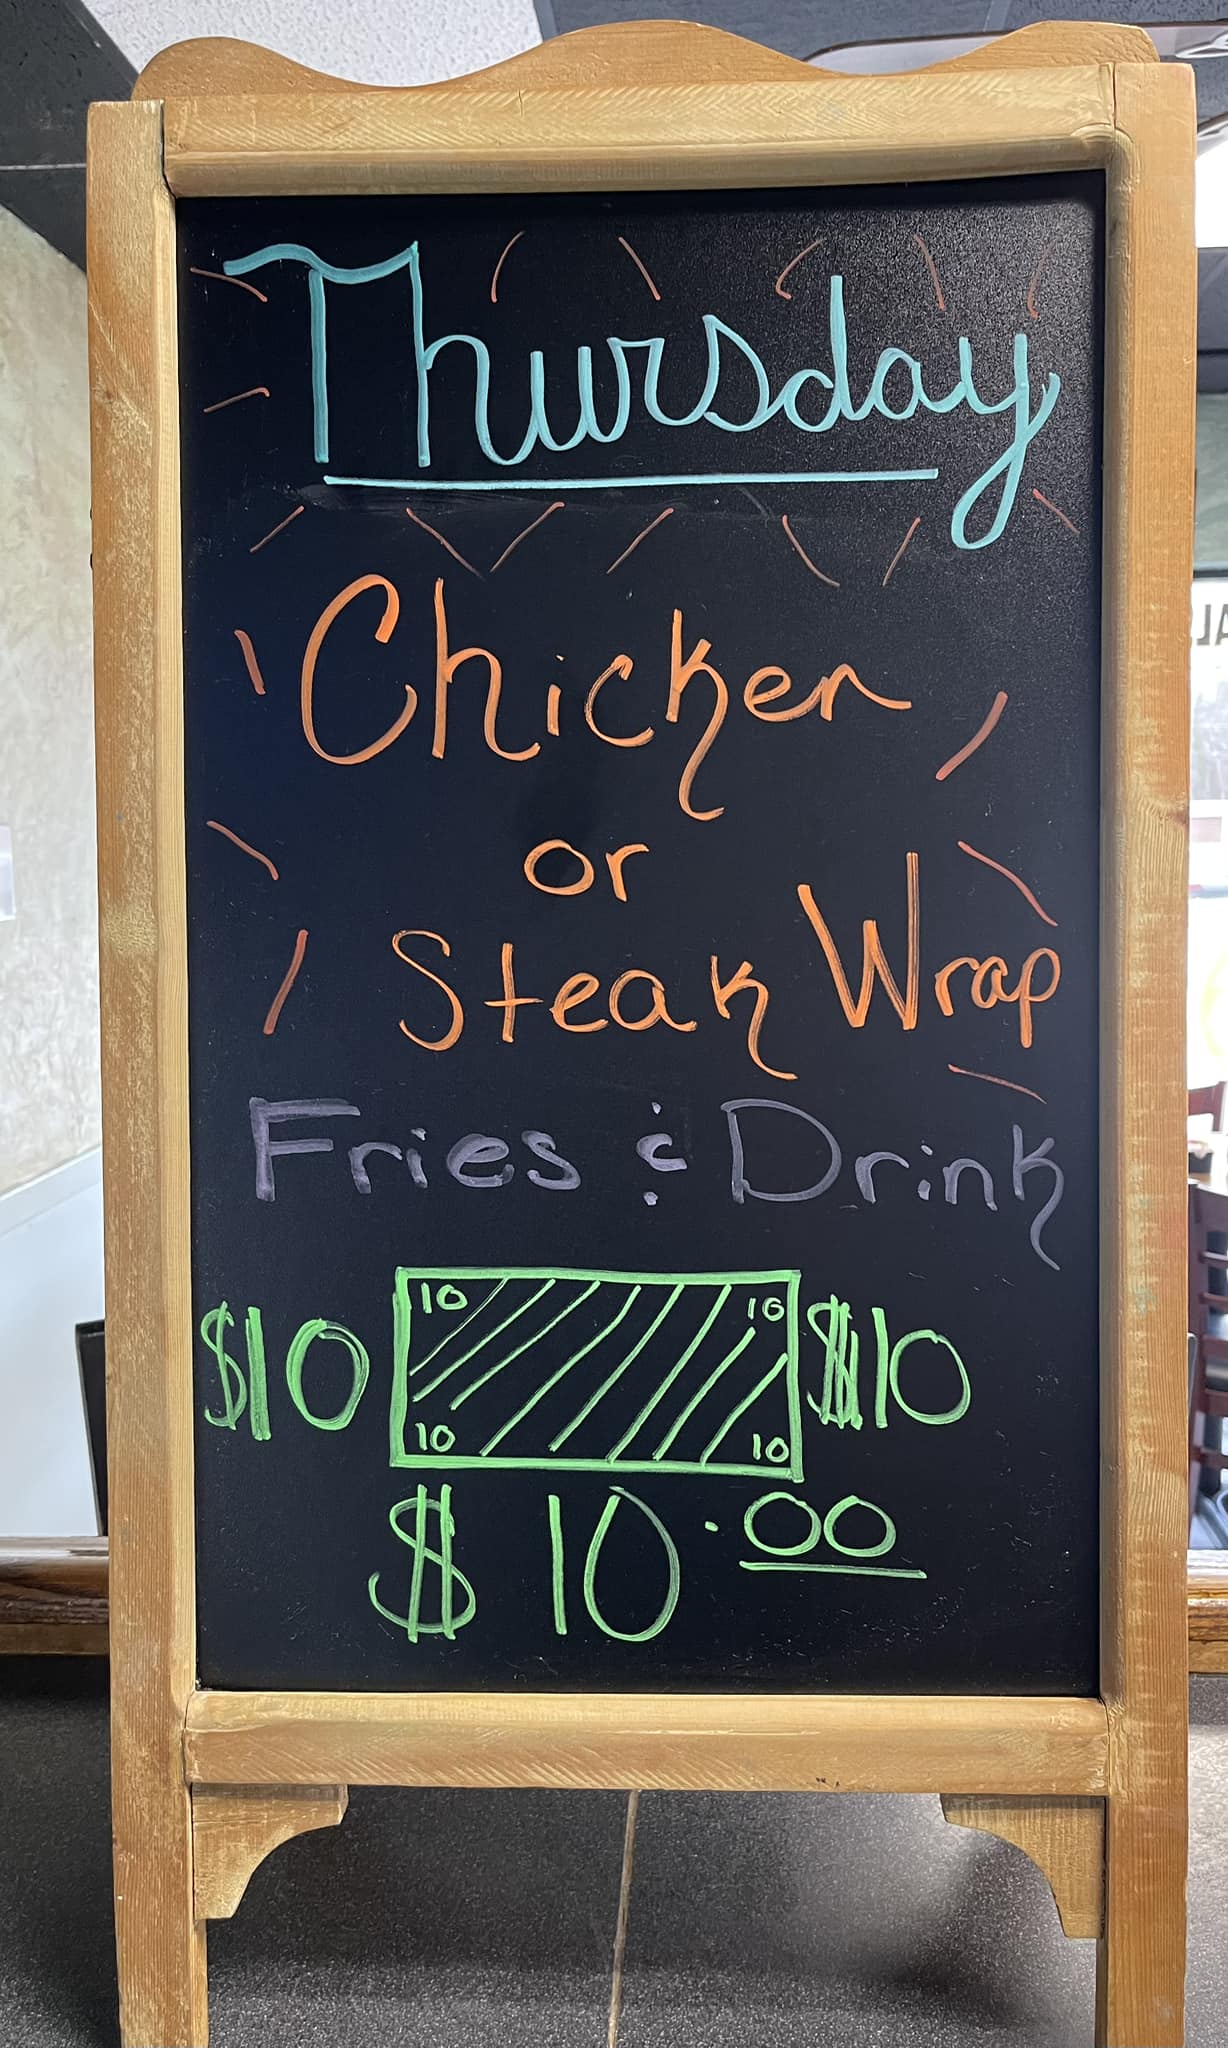 Thursday
Chicken
or
Steak Wrap
Fries & Drink
$10 10 10 $10
10 10
$10.00